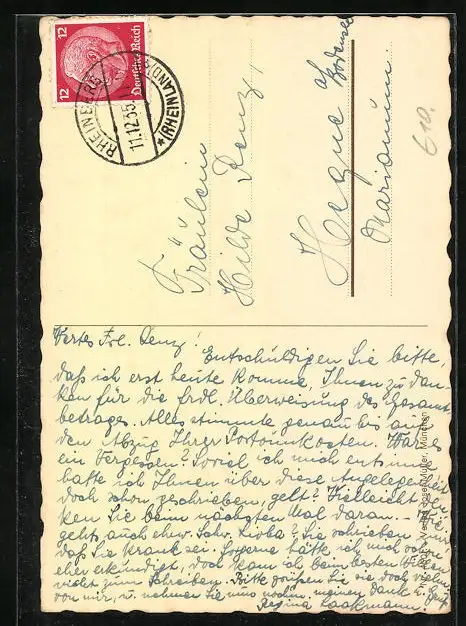 12
12
Deutsches Reich
RHEINBERG
11.12.35.
* (RHEINLAND)
Fräulein
Hilde Denz,
Hegne a/ Bodensee
Marianum
610.
Wertes Frl. Denz!
Entschuldigen Sie bitte,
daß ich erst heute komme, Ihnen zu dan-
ken für die frdl. Überweisung des Gesamt-
betrages. Alles stimmte genau bis auf
den Abzug Ihrer Portounkosten. War es
ein Vergessen? Soviel ich mich entsinne
hatte ich Ihnen über diese Angelegenheit
doch schon geschrieben, gelt? Vielleicht
ken Sie beim nächsten Mal daran.
gehts auch ehrw. Schw. Lioba? Sie schrieben
daß Sie krank sei. Gerne hätte ich mich schon
eher erkundigt, doch kam ich beim besten Willen
nicht zum Schreiben. Bitte grüßen Sie sie doch vielm.
von mir, u. nehmen Sie nun nochm. meinen Dank u. Gruß
Regina Laakmann.
Verlag Josef Müller, München